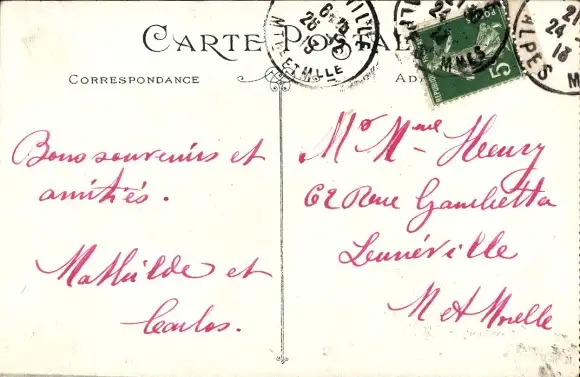 CARTE POSTALE
CORRESPONDANCE
Bons souvenirs et
amitiés.
Mathilde et
Carlos.
Mr Mme Henry
62 Rue Gambetta
Lunéville
M et Moselle
5
ALPES
MTHE ET MLLE